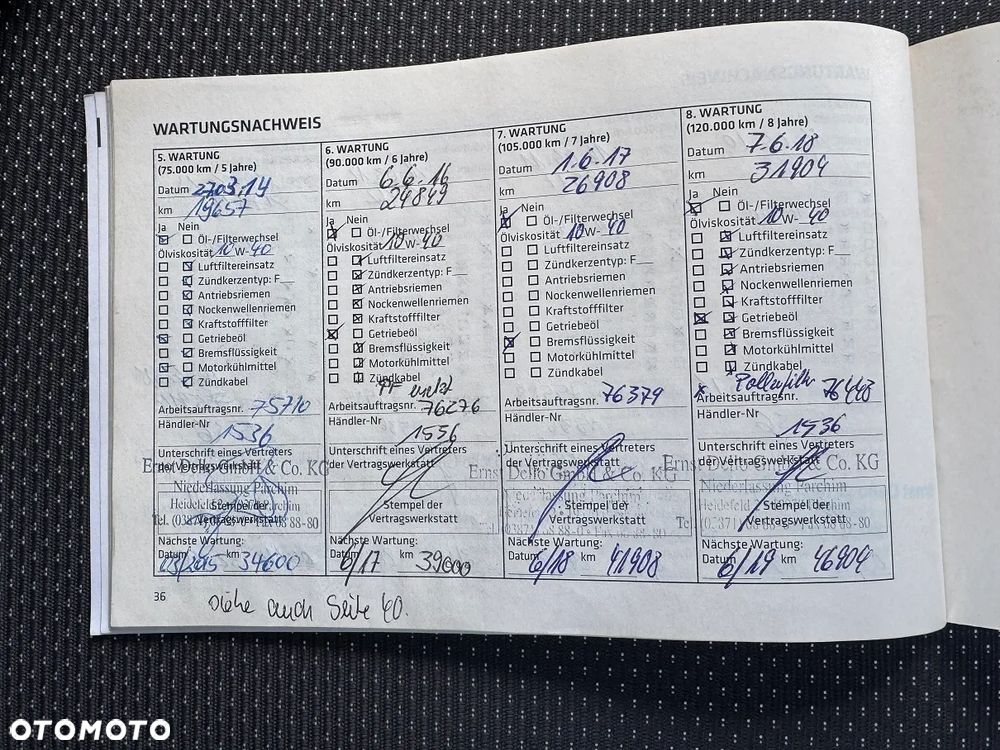 WARTUNGSNACHWEIS
5. WARTUNG
(75.000 km / 5 Jahre)
Datum 27.03.14
km 19657
Ja Nein
Öl-/Filterwechsel
Ölviskosität 10 W- 40
Luftfiltereinsatz
Zündkerzentyp: F__
Antriebsriemen
Nockenwellenriemen
Kraftstofffilter
Getriebeöl
Bremsflüssigkeit
Motorkühlmittel
Zündkabel
Arbeitsauftragsnr. 75710
Händler-Nr
1536
Unterschrift eines Vertreters
der Vertragswerkstatt
Ernst Dello GmbH & Co. KG
Niederlassung Parchim
Stempel der
Vertragswerkstatt
Nächste Wartung:
Datum km
03/2015 34600
6. WARTUNG
(90.000 km / 6 Jahre)
Datum 6.6.16
km 24849
Ja Nein
Öl-/Filterwechsel
Ölviskosität 10 W- 40
Luftfiltereinsatz
Zündkerzentyp: F__
Antriebsriemen
Nockenwellenriemen
Kraftstofffilter
Getriebeöl
Bremsflüssigkeit
Motorkühlmittel
Zündkabel
PF
Arbeitsauftragsnr. 76276
Händler-Nr
1536
Unterschrift eines Vertreters
der Vertragswerkstatt
Stempel der
Vertragswerkstatt
Nächste Wartung:
Datum km
6/17 39000
7. WARTUNG
(105.000 km / 7 Jahre)
Datum 1.6.17
km 26908
Ja Nein
Öl-/Filterwechsel
Ölviskosität 10 W- 40
Luftfiltereinsatz
Zündkerzentyp: F__
Antriebsriemen
Nockenwellenriemen
Kraftstofffilter
Getriebeöl
Bremsflüssigkeit
Motorkühlmittel
Zündkabel
Arbeitsauftragsnr. 76379
Händler-Nr
Unterschrift eines Vertreters
der Vertragswerkstatt
Ernst Dello GmbH & Co. KG
Niederlassung Parchim
Stempel der
Vertragswerkstatt
Nächste Wartung:
Datum km
6/18 41908
8. WARTUNG
(120.000 km / 8 Jahre)
Datum 7.6.18
km 31904
Ja Nein
Öl-/Filterwechsel
Ölviskosität 10 W- 40
Luftfiltereinsatz
Zündkerzentyp: F__
Antriebsriemen
Nockenwellenriemen
Kraftstofffilter
Getriebeöl
Bremsflüssigkeit
Motorkühlmittel
Zündkabel
Pollenfilter
Arbeitsauftragsnr. 76448
Händler-Nr
1536
Unterschrift eines Vertreters
der Vertragswerkstatt
Ernst Dello GmbH & Co. KG
Niederlassung Parchim
Stempel der
Vertragswerkstatt
Nächste Wartung:
Datum km
6/19 46904
36
siehe auch Seite 40.
OTOMOTO